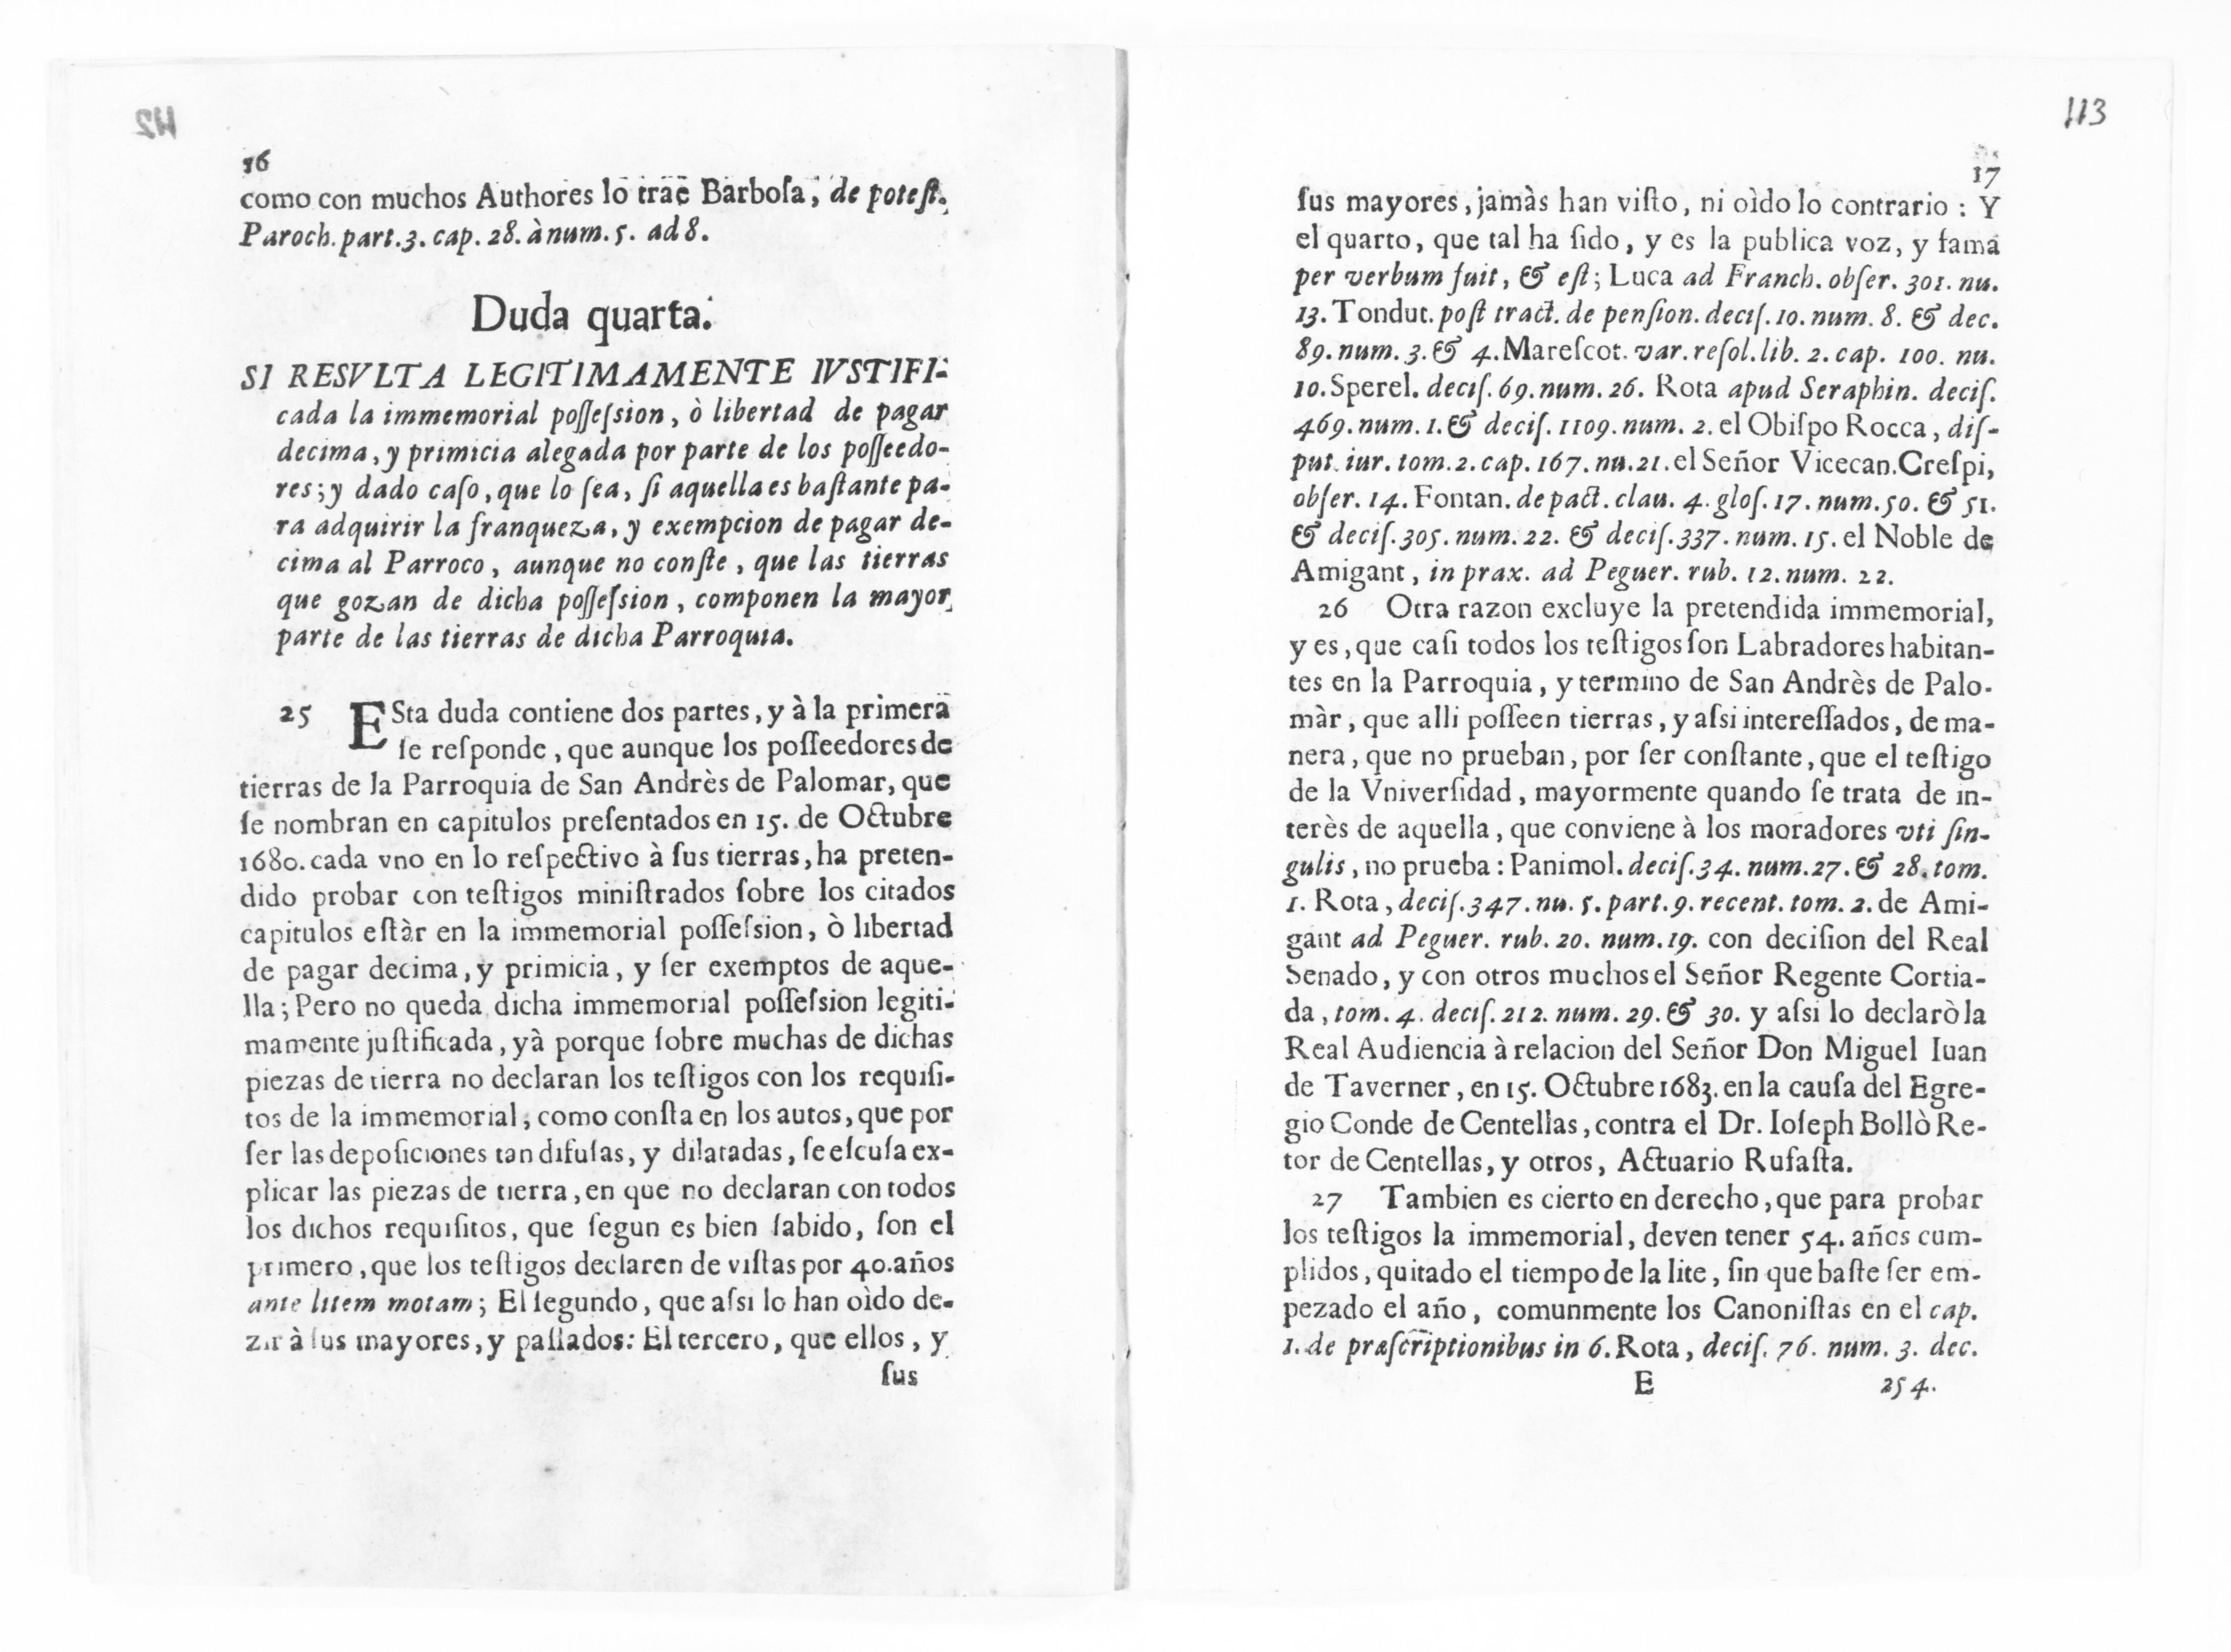 112
16
como con muchos Authores lo trae Barboſa, de poteſt.
Paroch. part. 3. cap. 28. à num. 5. ad 8.
Duda quarta.
SI RESVLTA LEGITIMAMENTE IVSTIFI-
cada la immemorial poſſeſsion, ò libertad de pagar
decima, y primicia alegada por parte de los poſſeedo-
res; y dado caſo, que lo ſea, ſi aquella es baſtante pa-
ra adquirir la franqueza, y exempcion de pagar de-
cima al Parroco, aunque no conſte, que las tierras
que gozan de dicha poſſeſsion, componen la mayor
parte de las tierras de dicha Parroquia.
25 ESta duda contiene dos partes, y à la primera
ſe reſponde, que aunque los poſſeedores de
tierras de la Parroquia de San Andrès de Palomar, que
ſe nombran en capitulos preſentados en 15. de Octubre
1680. cada vno en lo reſpectivo à ſus tierras, ha preten-
dido probar con teſtigos miniſtrados ſobre los citados
capitulos eſtàr en la immemorial poſſeſsion, ò libertad
de pagar decima, y primicia, y ſer exemptos de aque-
lla; Pero no queda dicha immemorial poſſeſsion legiti-
mamente juſtificada, yà porque ſobre muchas de dichas
piezas de tierra no declaran los teſtigos con los requiſi-
tos de la immemorial, como conſta en los autos, que por
ſer las depoſiciones tan difuſas, y dilatadas, ſe eſcuſa ex-
plicar las piezas de tierra, en que no declaran con todos
los dichos requiſitos, que ſegun es bien ſabido, ſon el
primero, que los teſtigos declaren de viſtas por 40. años
ante litem motam; El ſegundo, que aſsi lo han oìdo de-
zir à ſus mayores, y paſſados: El tercero, que ellos, y
ſus
113
17
ſus mayores, jamàs han viſto, ni oìdo lo contrario: Y
el quarto, que tal ha ſido, y es la publica voz, y fama
per verbum fuit, & eſt; Luca ad Franch. obſer. 301. nu.
13. Tondut. poſt tract. de penſion. deciſ. 10. num. 8. & dec.
89. num. 3. & 4. Mareſcot. var. reſol. lib. 2. cap. 100. nu.
10. Sperel. deciſ. 69. num. 26. Rota apud Seraphin. deciſ.
469. num. 1. & deciſ. 1109. num. 2. el Obiſpo Rocca, diſ-
put. iur. tom. 2. cap. 167. nu. 21. el Señor Vicecan. Creſpi,
obſer. 14. Fontan. de pact. clau. 4. gloſ. 17. num. 50. & 51.
& deciſ. 305. num. 22. & deciſ. 337. num. 15. el Noble de
Amigant, in prax. ad Peguer. rub. 12. num. 22.
26 Otra razon excluye la pretendida immemorial,
y es, que caſi todos los teſtigos ſon Labradores habitan-
tes en la Parroquia, y termino de San Andrès de Palo-
màr, que alli poſſeen tierras, y aſsi intereſſados, de ma-
nera, que no prueban, por ſer conſtante, que el teſtigo
de la Vniverſidad, mayormente quando ſe trata de in-
terès de aquella, que conviene à los moradores vti ſin-
gulis, no prueba: Panimol. deciſ. 34. num. 27. & 28. tom.
1. Rota, deciſ. 347. nu. 5. part. 9. recent. tom. 2. de Ami-
gant ad Peguer. rub. 20. num. 19. con deciſion del Real
Senado, y con otros muchos el Señor Regente Cortia-
da, tom. 4. deciſ. 212. num. 29. & 30. y aſsi lo declarò la
Real Audiencia à relacion del Señor Don Miguel Iuan
de Taverner, en 15. Octubre 1683. en la cauſa del Egre-
gio Conde de Centellas, contra el Dr. Ioſeph Bollò Re-
tor de Centellas, y otros, Actuario Rufaſta.
27 Tambien es cierto en derecho, que para probar
los teſtigos la immemorial, deven tener 54. años cum-
plidos, quitado el tiempo de la lite, ſin que baſte ſer em-
pezado el año, comunmente los Canoniſtas en el cap.
1. de præſcriptionibus in 6. Rota, deciſ. 76. num. 3. dec.
E 254.